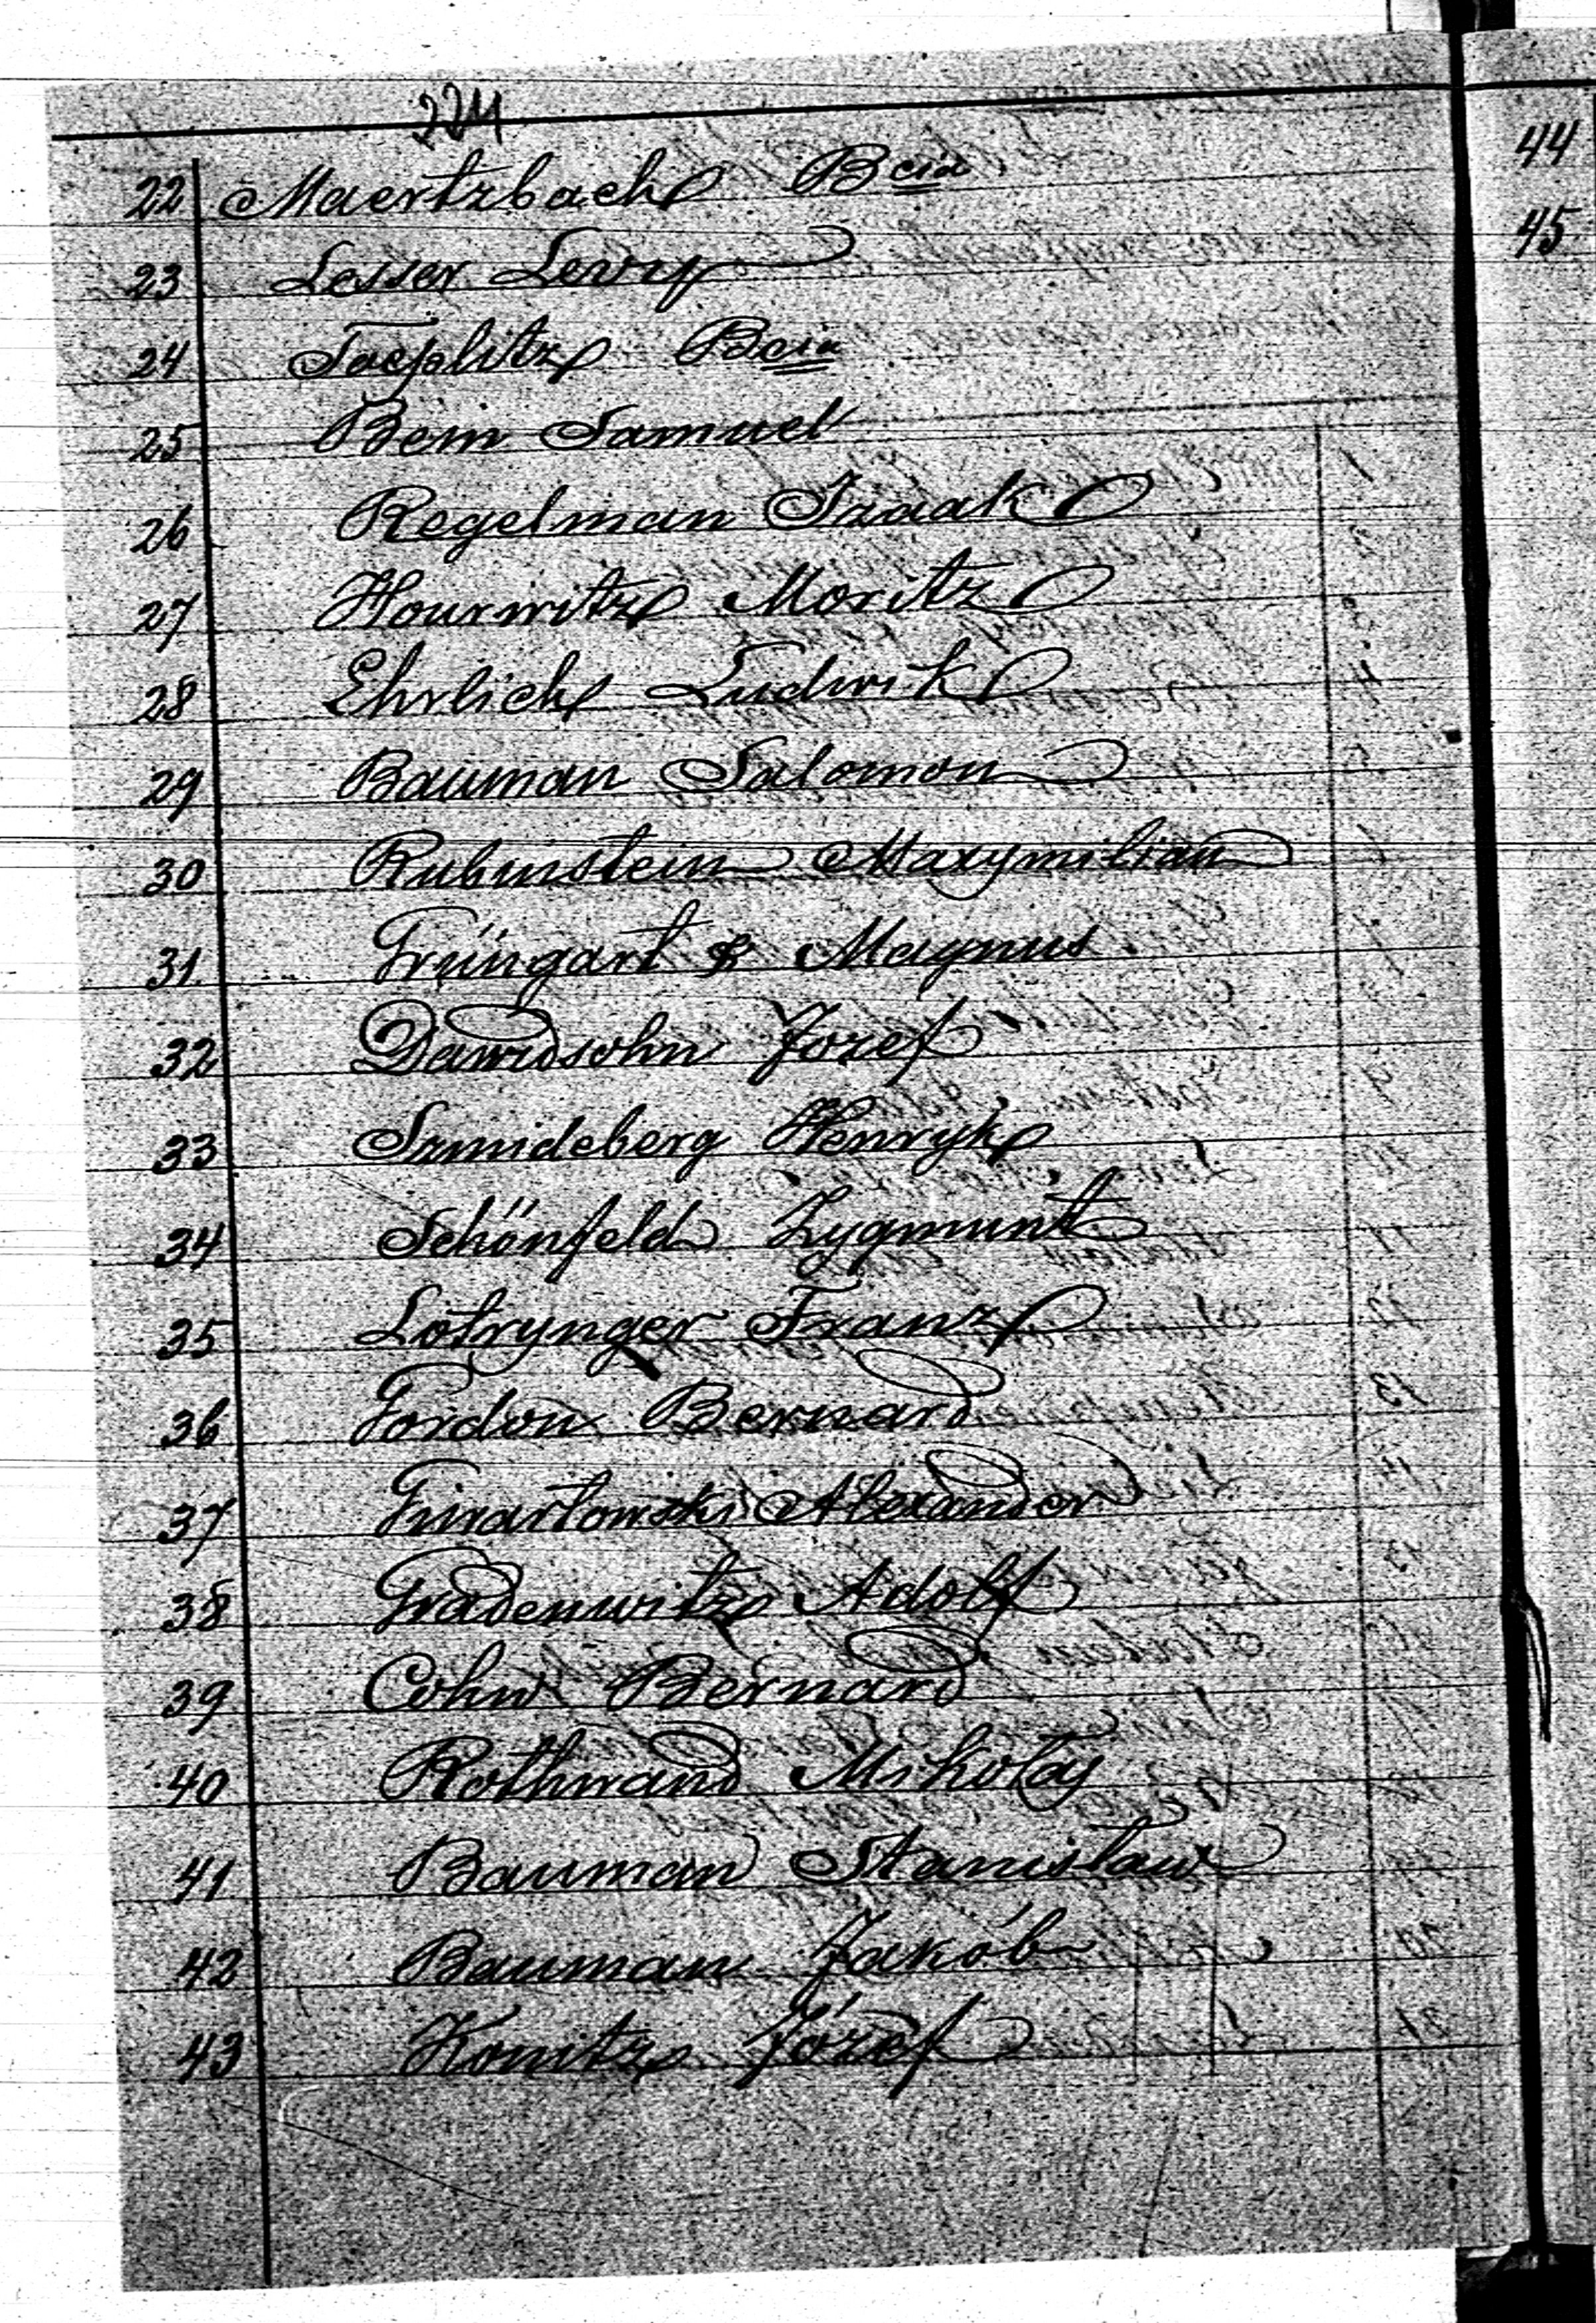 224
22 Maertzbach Bcia
23 Lesser Levy
24 Toeplitz Bcia
25 Bein Samuel
26 Regelman Izaak
27 Hourwitz Moritz
28 Ehrlich Ludwik
29 Bauman Salomon
30 Rubinstein Maxymilian
31 Grüngart & Magnus
32 Dawidsohn Jozef
33 Szmideberg Henryk
34 Schönfeld Zygmunt
35 Lotrynger Franz
36 Fordon Bernard
37 Alexander
38 Gradenwitz Adolf
39 Cohn Bernard
40 Rothwand Mikołaj
41 Bauman Stanisław
42 Bauman Jakób
43 Konitz Józef
44
45